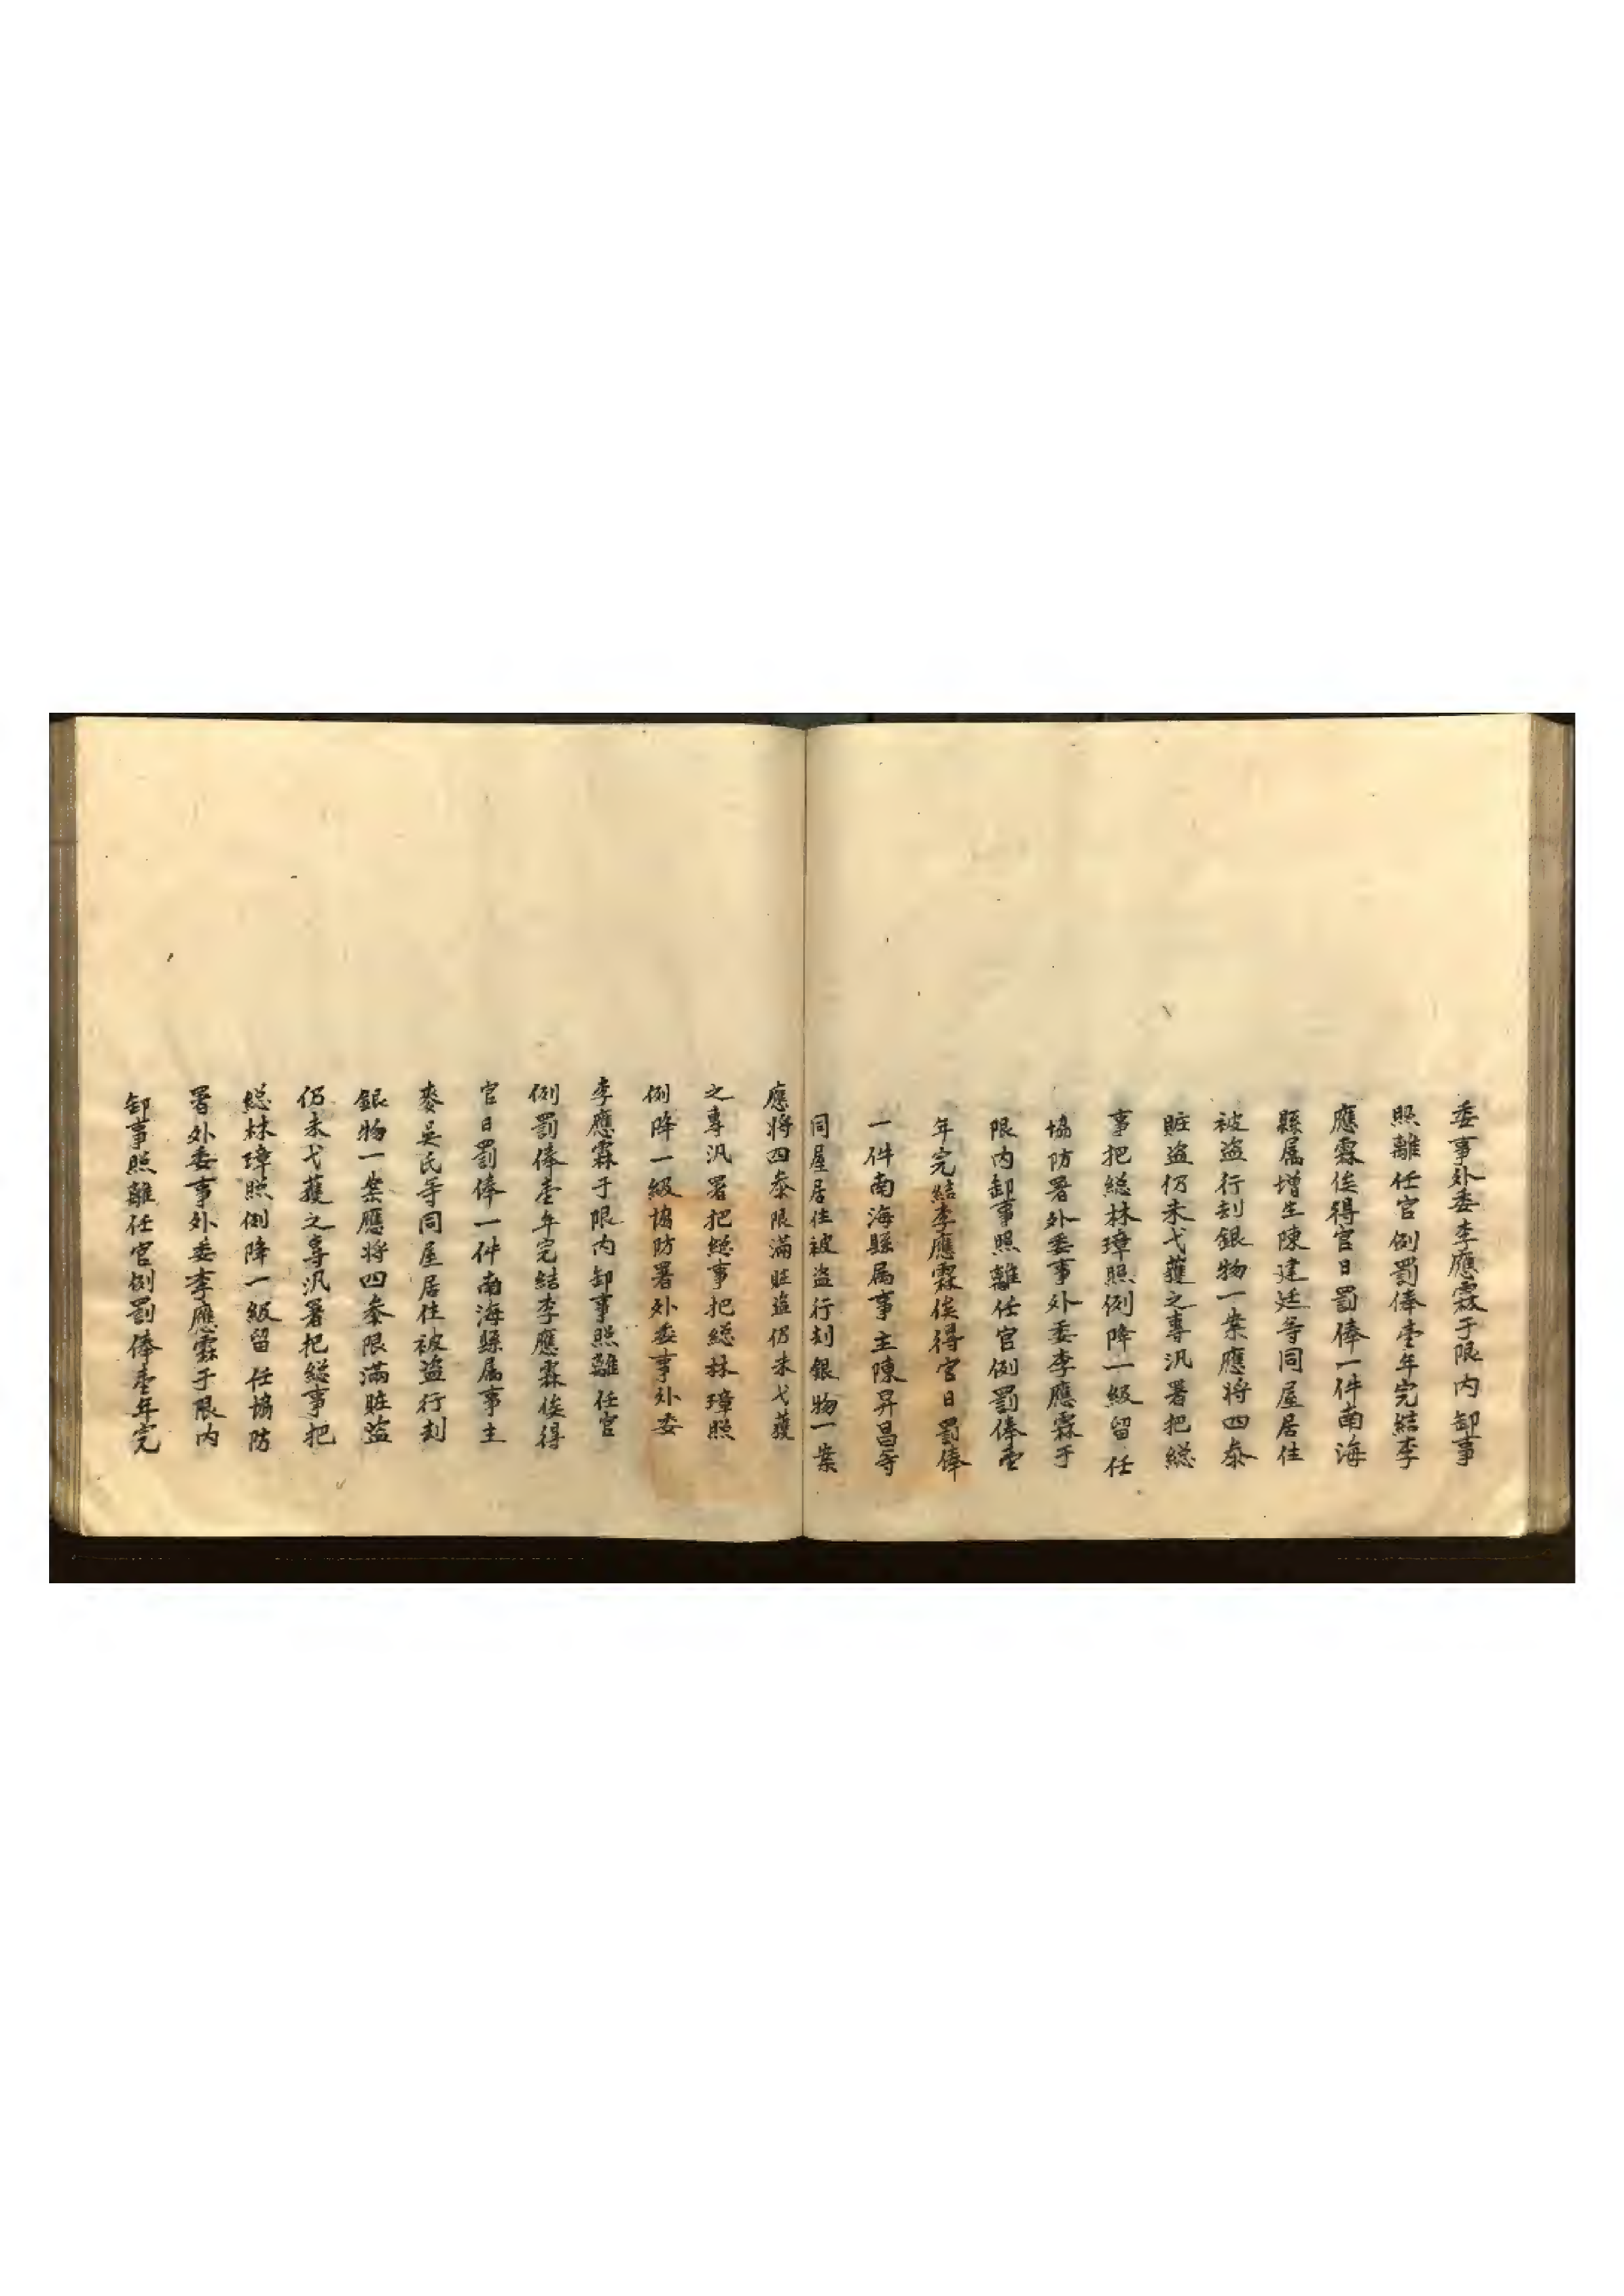 委事外委李應霖于限内卸事
照離任官例罰俸壹年完結李
應霖俟得官日罰俸一件南海
縣属增生陳建廷等同屋居住
被盗行刦銀物一案應将四叅
賍盗仍未弋獲之專汛署把総
事把総林璋照例降一級留任
協防署外委事外委李應霖于
限内卸事照離任官例罰俸壹
年完結李應霖俟得官日罰俸
一件南海縣属事主陳昇昌等
同屋居住被盗行刦銀物一案
應将四叅限滿賍盗仍未弋獲
之專汛署把総事把総林璋照
例降一級協防署外委事外委
李應霖于限内卸事照離任官
例罰俸壹年完結李應霖俟得
官日罰俸一件南海縣属事主
麥吳氏等同屋居住被盗行刦
銀物一案應将四叅限滿賍盗
仍未弋獲之專汛署把総事把
総林璋照例降一級留任協防
署外委事外委李應霖于限内
卸事照離任官例罰俸壹年完